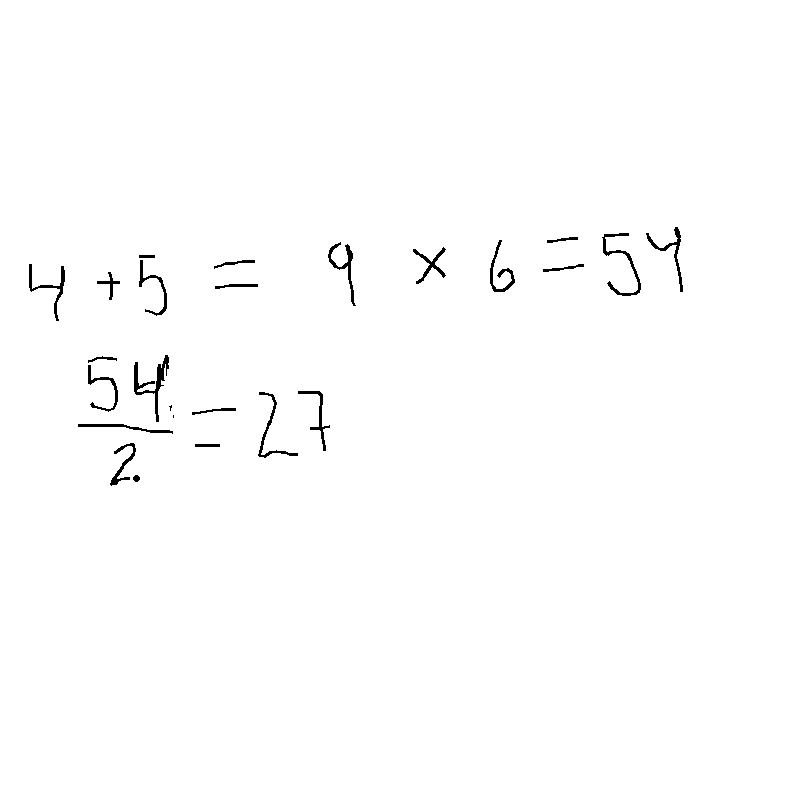 4 + 5 = 9 × 6 = 54
54/2 = 27